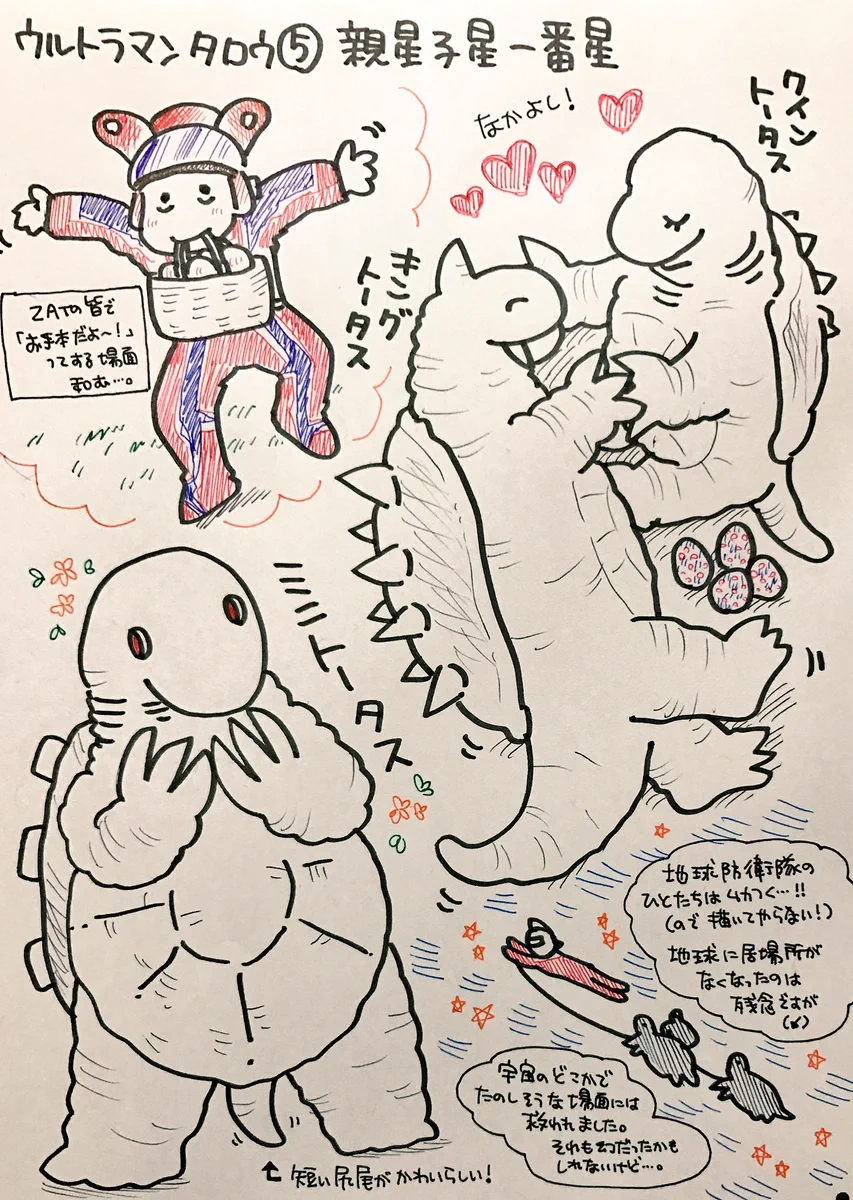 ウルトラマンタロウ⑤ 親星子星一番星
なかよし!
クイン
トータス
キング
トータス
ZATの皆で
「お手本だよ〜!」
ってする場面
和む…。
ミニトータス
地球防衛隊の
ひとたちはムカつく…!!
(ので描いてやらない!)
地球に居場所が
なくなったのは
残念ですが
宇宙のどこかで
たのしそうな場面には
救われました。
それも幻だったかも
しれないけど…。
短い尻尾がかわいらしい!